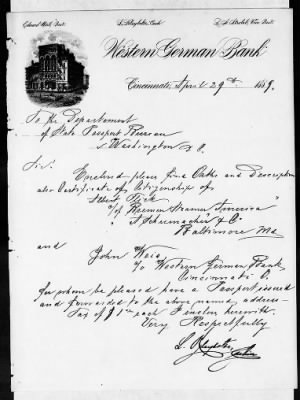 Western German Bank
Cincinnati, April 29th 1889.
To the Department
of State Passport Bureau
Washington D.C.
Sir:
Enclosed please find Oaths and Description
also Certificate of Citizenship of
Albert
c/o German Steamer "America"
" A Schumacher & Co
Baltimore Md
and John Weis
c/o Western German Bank
Cincinnati O.
for whom be pleased have a Passport issued
and forwarded to the above named address
Tax of $1 each I inclose herewith.
Very Respectfully
Cashier